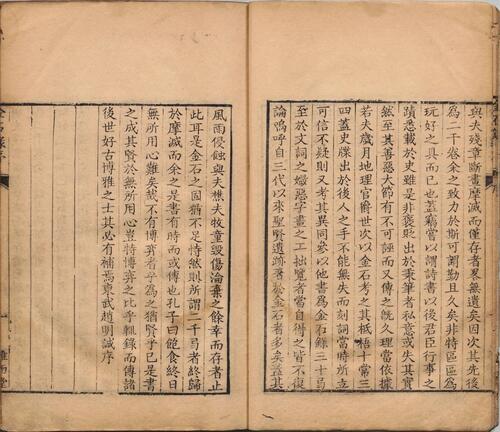 與夫殘章斷畫摩滅而僅存者畧無遺矣因次其先後
為二千弓余之致力於斯可謂勤且久矣非特區區為
玩好之具而已也蓋竊嘗以謂詩書以後君臣行事之
蹟悉載於史雖是非褒貶出於秉筆者私意或失其實
然至其善惡大節有不可誣而又傳之旣久理當依據
若夫歲月地理官爵世次以金石考之其抵牾十常三
四蓋史牒出於後人之手不能無失而刻詞當時所立
可信不疑則又考其異同參以他書為金石錄三十弓
至於文詞之媺惡字畫之工拙覽者當自得之皆不復
論嗚呼自三代以來聖賢遺跡著於金石者多矣蓋其
風雨侵蝕與夫樵夫牧童毀傷淪棄之餘幸而存者止
此耳是金石之固猶不足恃然則所謂二千弓者終歸
於摩滅而余之是書有時而或傳也孔子曰飽食終日
無所用心難矣哉不有博弈者乎為之猶賢乎已是書
之成其賢於無所用心豈特博弈之比乎輒錄而傳諸
後世好古博雅之士其必有補焉東武趙明誠序
金石錄序
雅雨堂